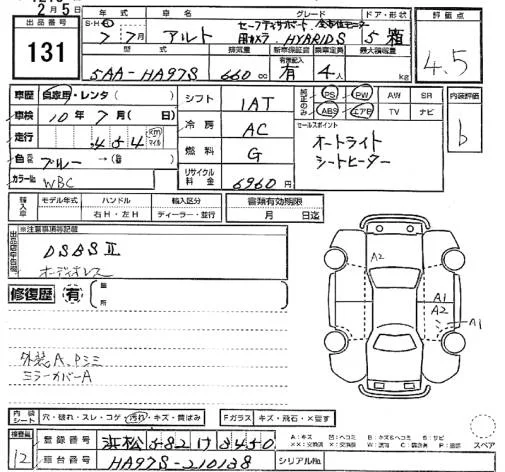 2月5日
出品番号
131
年式 車名 グレード ドア・形状 評価点
S・H・R
7年7月 アルト セーフティサポート 全方位モニター
用カメラ HYBRIDS 5 箱
4.5
型式 排気量 新車保証書 乗車定員 最大積載量
5AA-HA97S 660cc 有 4人 kg
車歴 自家用・レンタ( )
車検 10年7月( 日)
走行 454 Km マイル
色 ブルー →(色 )
カラーNo. WBC
シフト 1AT
冷房 AC
燃料 G
リサイクル料金 6960円
純正のみ PS PW AW SR
ABS エアB TV ナビ
内装評価
b
セールスポイント
オートライト
シートヒーター
輸入車 モデル年式 ハンドル 輸入区分
右H・左H ディーラー・並行
書類有効期限
月 日迄
出品店申告欄
※注意事項等記載
DSBSⅡ
オーディオレス
修復歴 有 箇所
A2
A1
A2
A1
外装A、Pミミ
ミラーカバーA
内装 シート 穴・破れ・スレ・コゲ・汚れ・キズ・黄ばみ
Fガラス キズ・飛石・X要す
スペア
検査員
12
登録番号 浜松 582 け 8450
車台番号 HA97S-210138
シリアルNo.